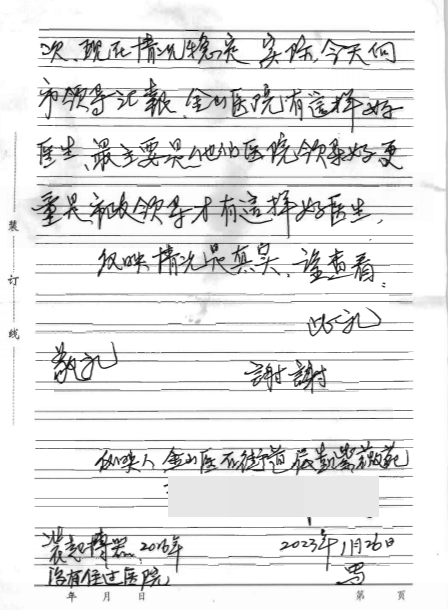 次、现在情况稳定 实际,今天向
市领导汇报,金山医院有这样好
医生,最主要是他们医院领导好更
重是市政领导才有这样好医生,
反映情况是真实,请查看。
此礼
敬礼
謝謝
反映人 金山区石街道
装起搏器,2016年
没有住过医院,
2023年1月26日
写
装
订
线
年 月 日
第 页